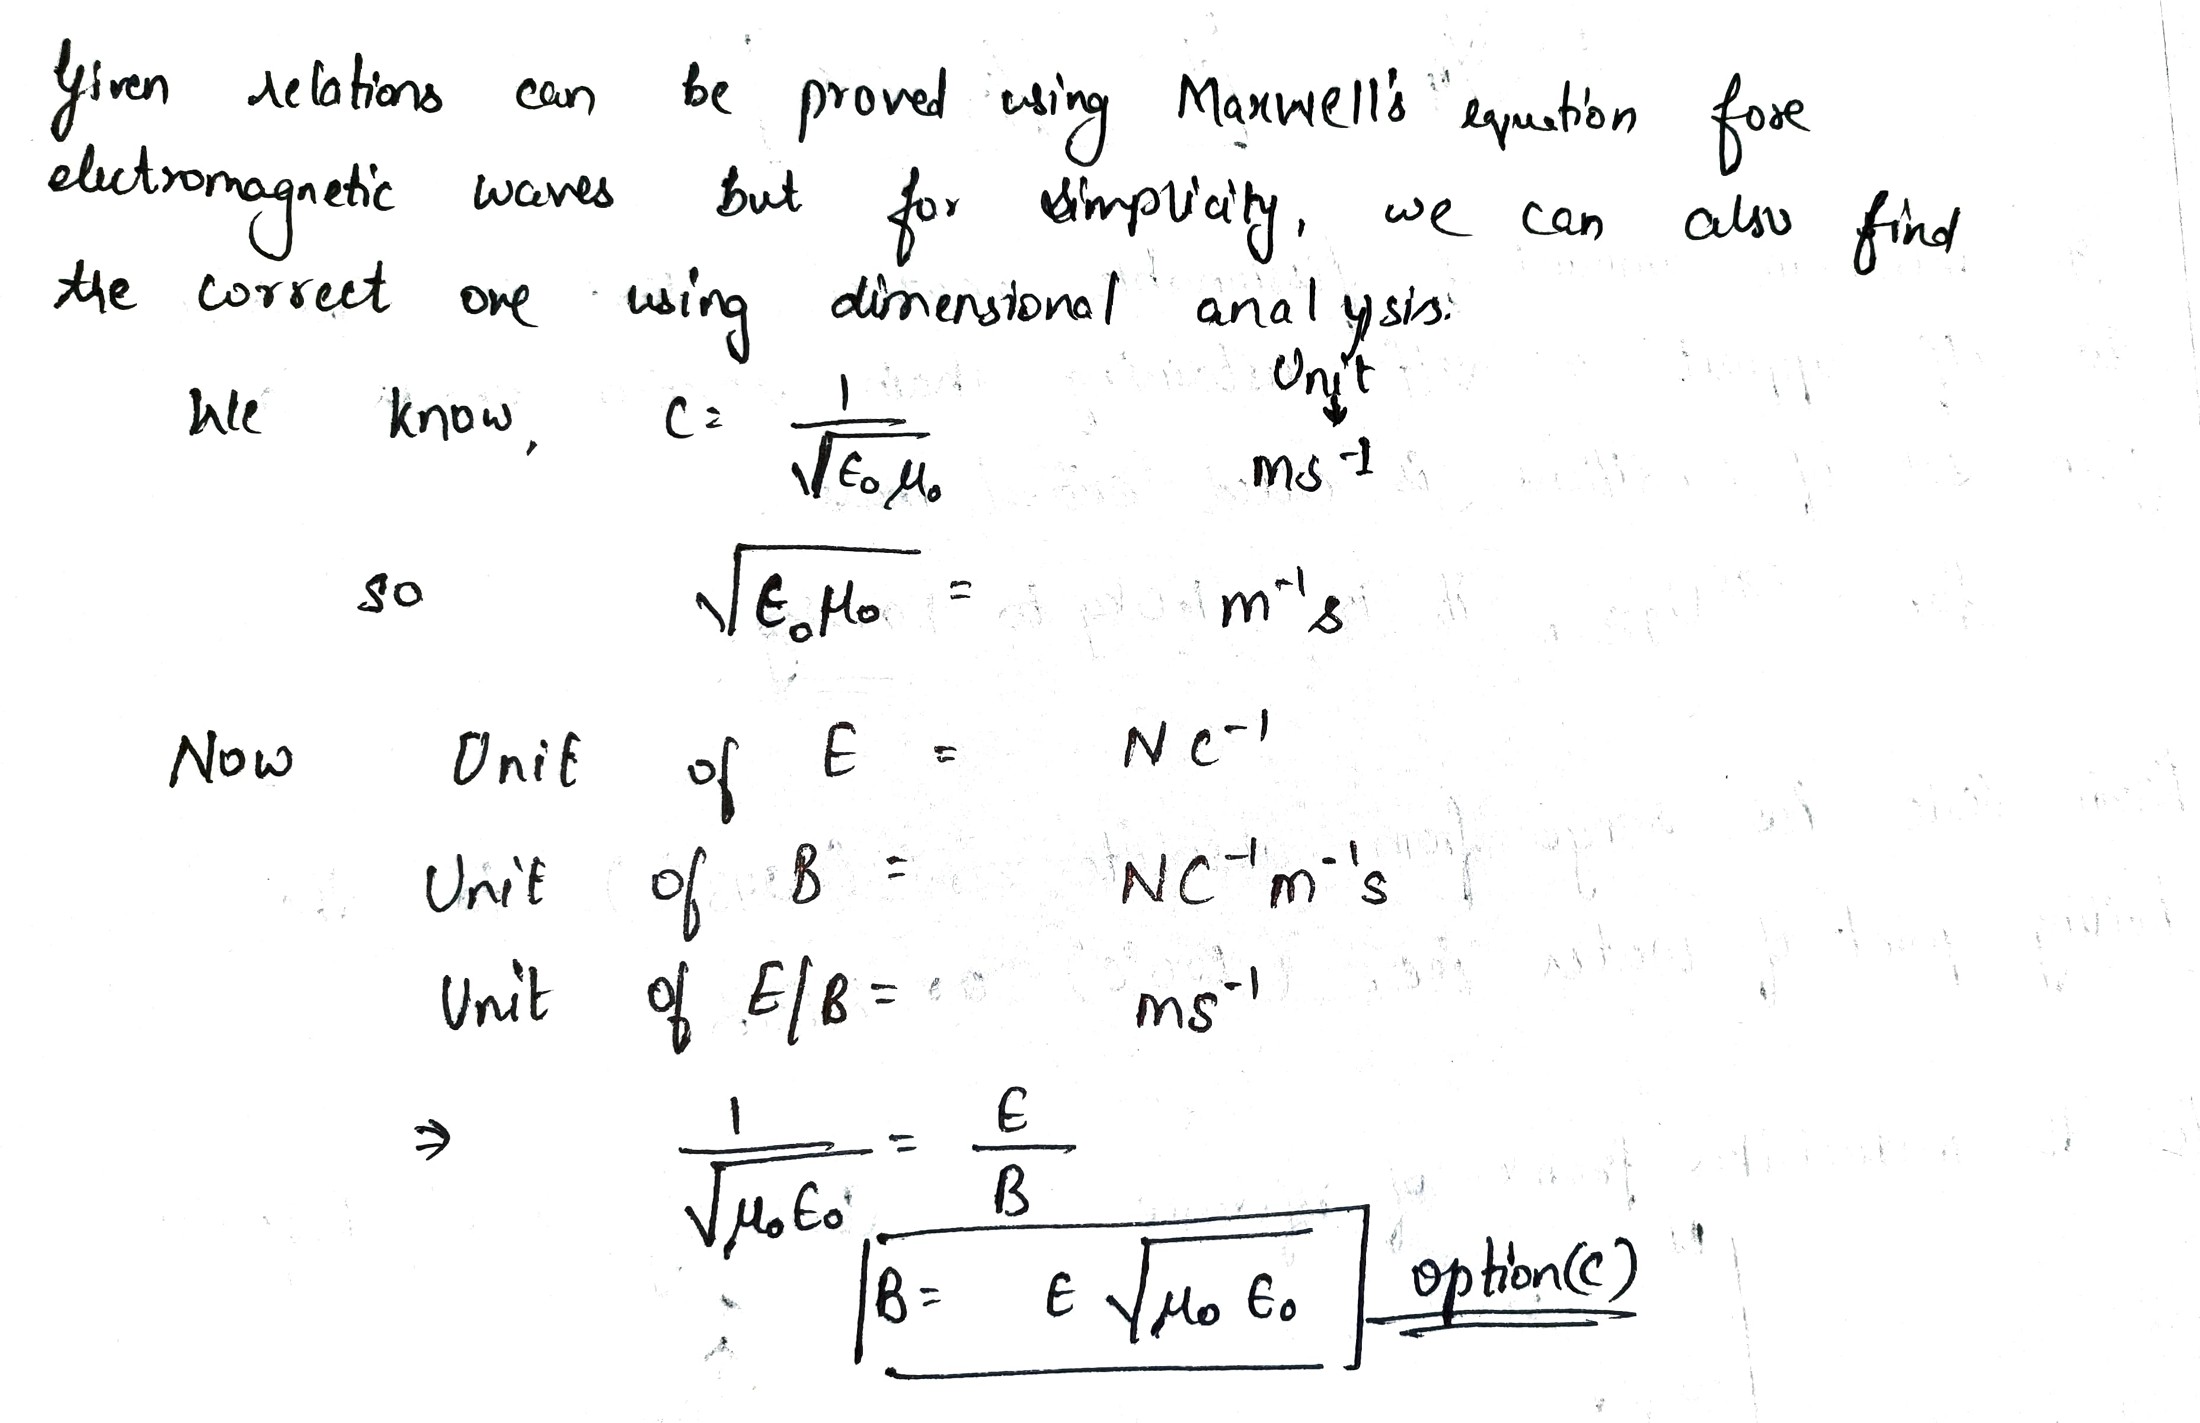 Given relations can be proved using Maxwell's equation fore
electromagnetic waves but for simplicity, we can also find
the correct one using dimensional analysis.
Unit
↓
We know, C = 1/√ϵ₀μ₀ ms⁻¹
so √ϵ₀μ₀ = m⁻¹s
Now Unit of E = NC⁻¹
Unit of B = NC⁻¹m⁻¹s
Unit of E/B = ms⁻¹
⇒ 1/√μ₀ϵ₀ = E/B
B = E √μ₀ ϵ₀ option(C)